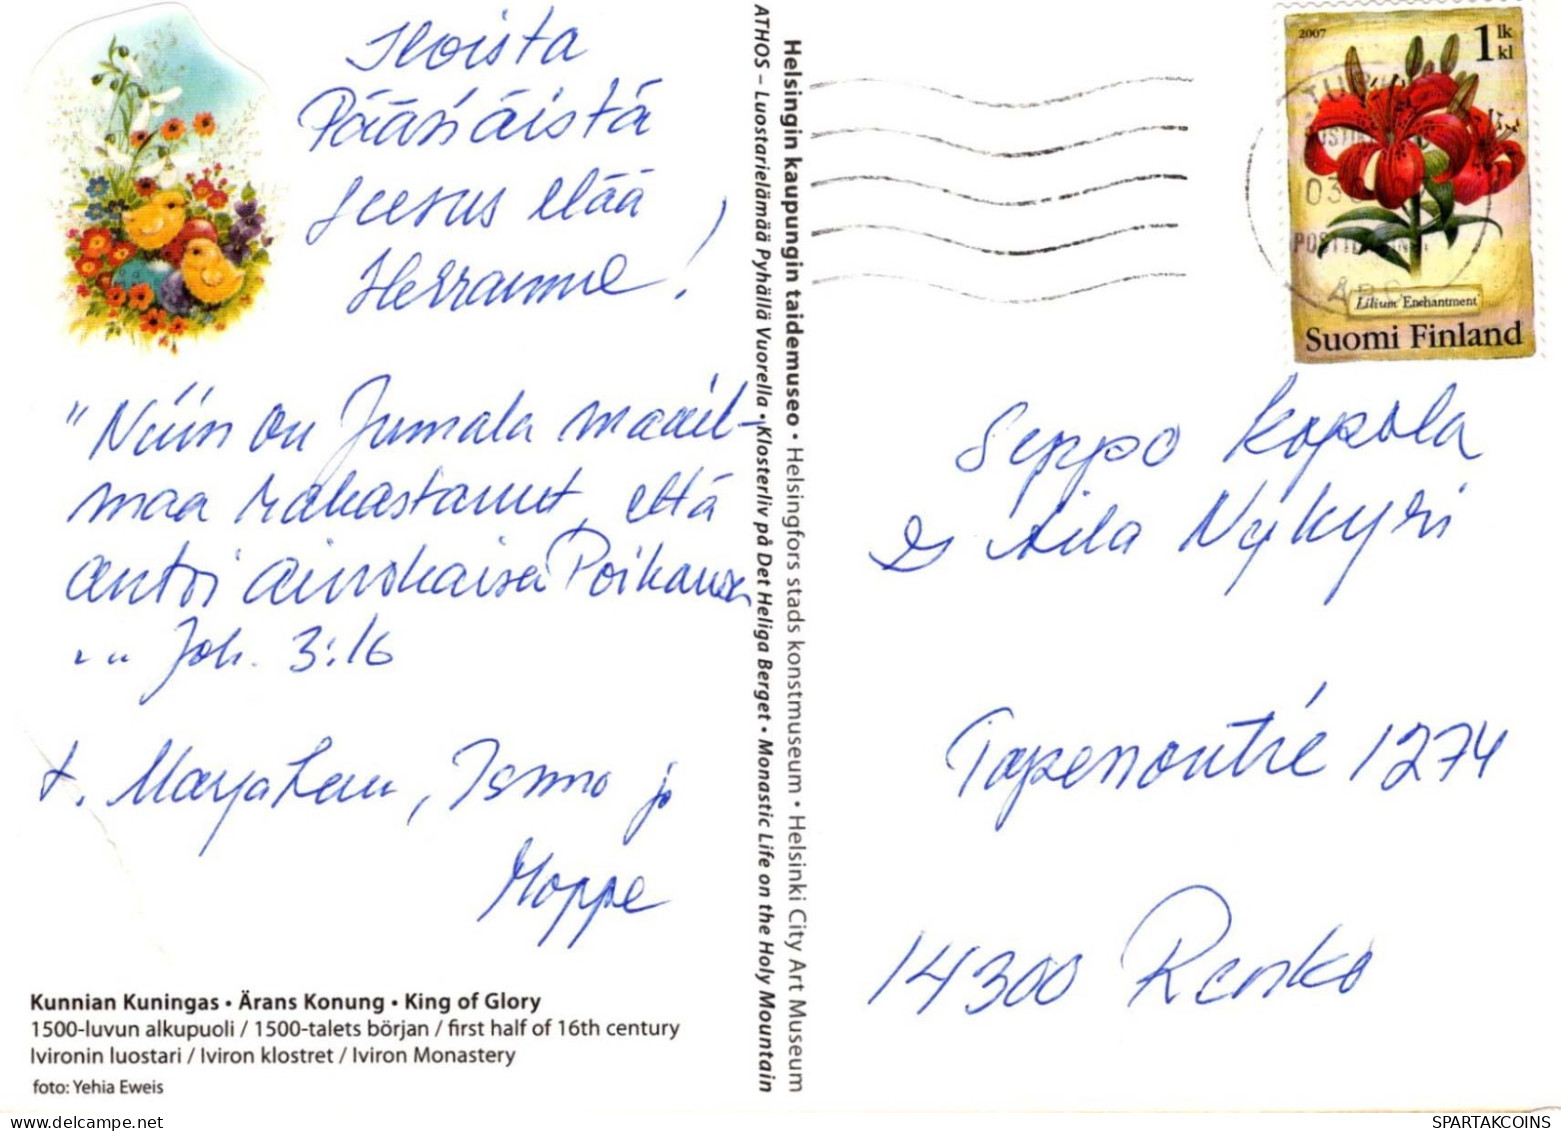 Iloista
Pääsiäistä
Jeesus elää
Herramme!
"Niin on Jumala maail-
maa rakastanut, että
antoi ainokaisen Poikansa
... Joh. 3:16
t. Marjaleena, Ismo ja
Moppe
Kunnian Kuningas • Ärans Konung • King of Glory
1500-luvun alkupuoli / 1500-talets början / first half of 16th century
Ivironin luostari / Iviron klostret / Iviron Monastery
foto: Yehia Eweis
ATHOS – Luostarielämää Pyhällä Vuorella • Klosterliv på Det Heliga Berget • Monastic Life on the Holy Mountain
Helsingin kaupungin taidemuseo • Helsingfors stads konstmuseum • Helsinki City Art Museum
2007
1 lk
kl
Lilium 'Enchantment'
Suomi Finland
Seppo Kopola
& Aila Nykyri
Tapenoutie 1274
14300 Renko
SPARTAKCOINS